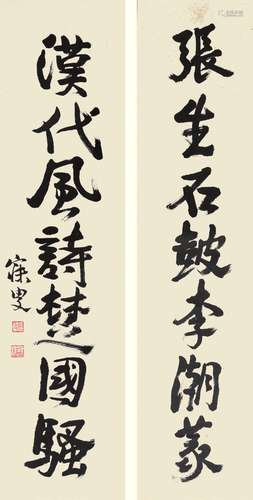 張生石鼓李潮篆
漢代風詩楚國騷
寐叟